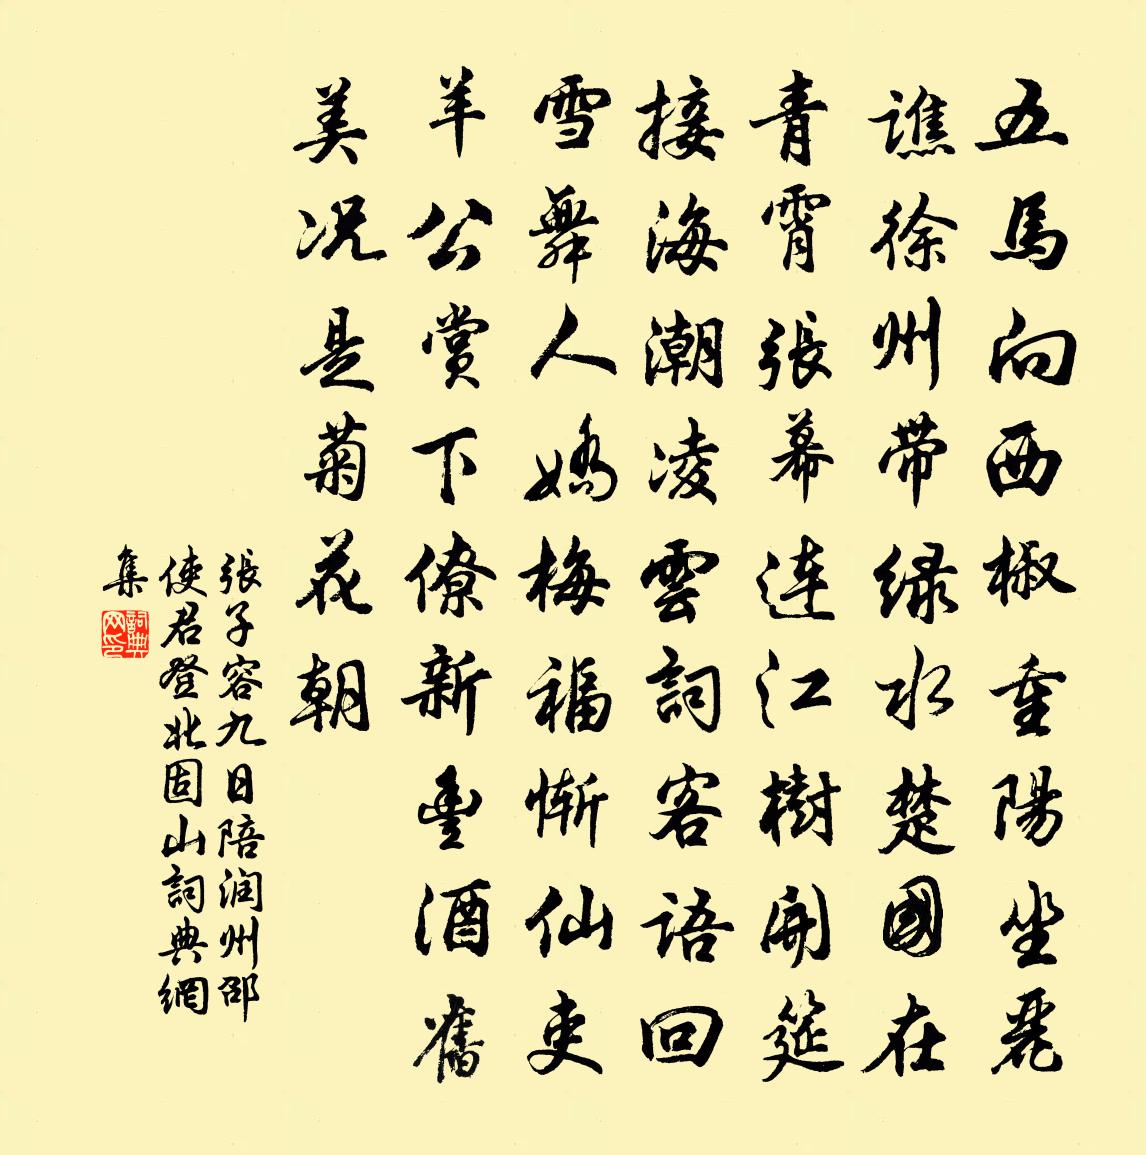 五馬向西椒重陽坐麗
譙徐州帶绿水楚國在
青霄張幕連江樹開筵
接海潮凌雲詞客語回
雪舞人嬌梅福慚仙吏
羊公賞下僚新豐酒舊
美况是菊花朝
張子容九日陪润州邵
使君登北固山詞典網
集
詞典
网印